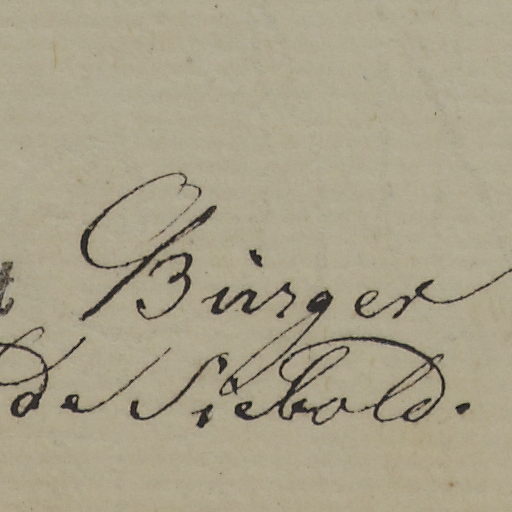 t Bürger
de Siebold.